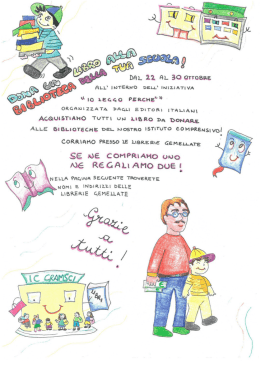 DONA UN LIBRO ALLA
BIBLIOTECA DELLA TUA SCUOLA!
DAL 22 AL 30 OTTOBRE
ALL'INTERNO DELL'INIZIATIVA
"IO LEGGO PERCHE'"
ORGANIZZATA DAGLI EDITORI ITALIANI
ACQUISTIAMO TUTTI UN LIBRO DA DONARE
ALLE BIBLIOTECHE DEL NOSTRO ISTITUTO COMPRENSIVO!
CORRIAMO PRESSO LE LIBRERIE GEMELLATE
SE NE COMPRIAMO UNO
NE REGALIAMO DUE!
NELLA PAGINA SEGUENTE TROVERETE
NOMI E INDIRIZZI DELLE
LIBRERIE GEMELLATE
Grazie
a
tutti!
IC GRAMSCI